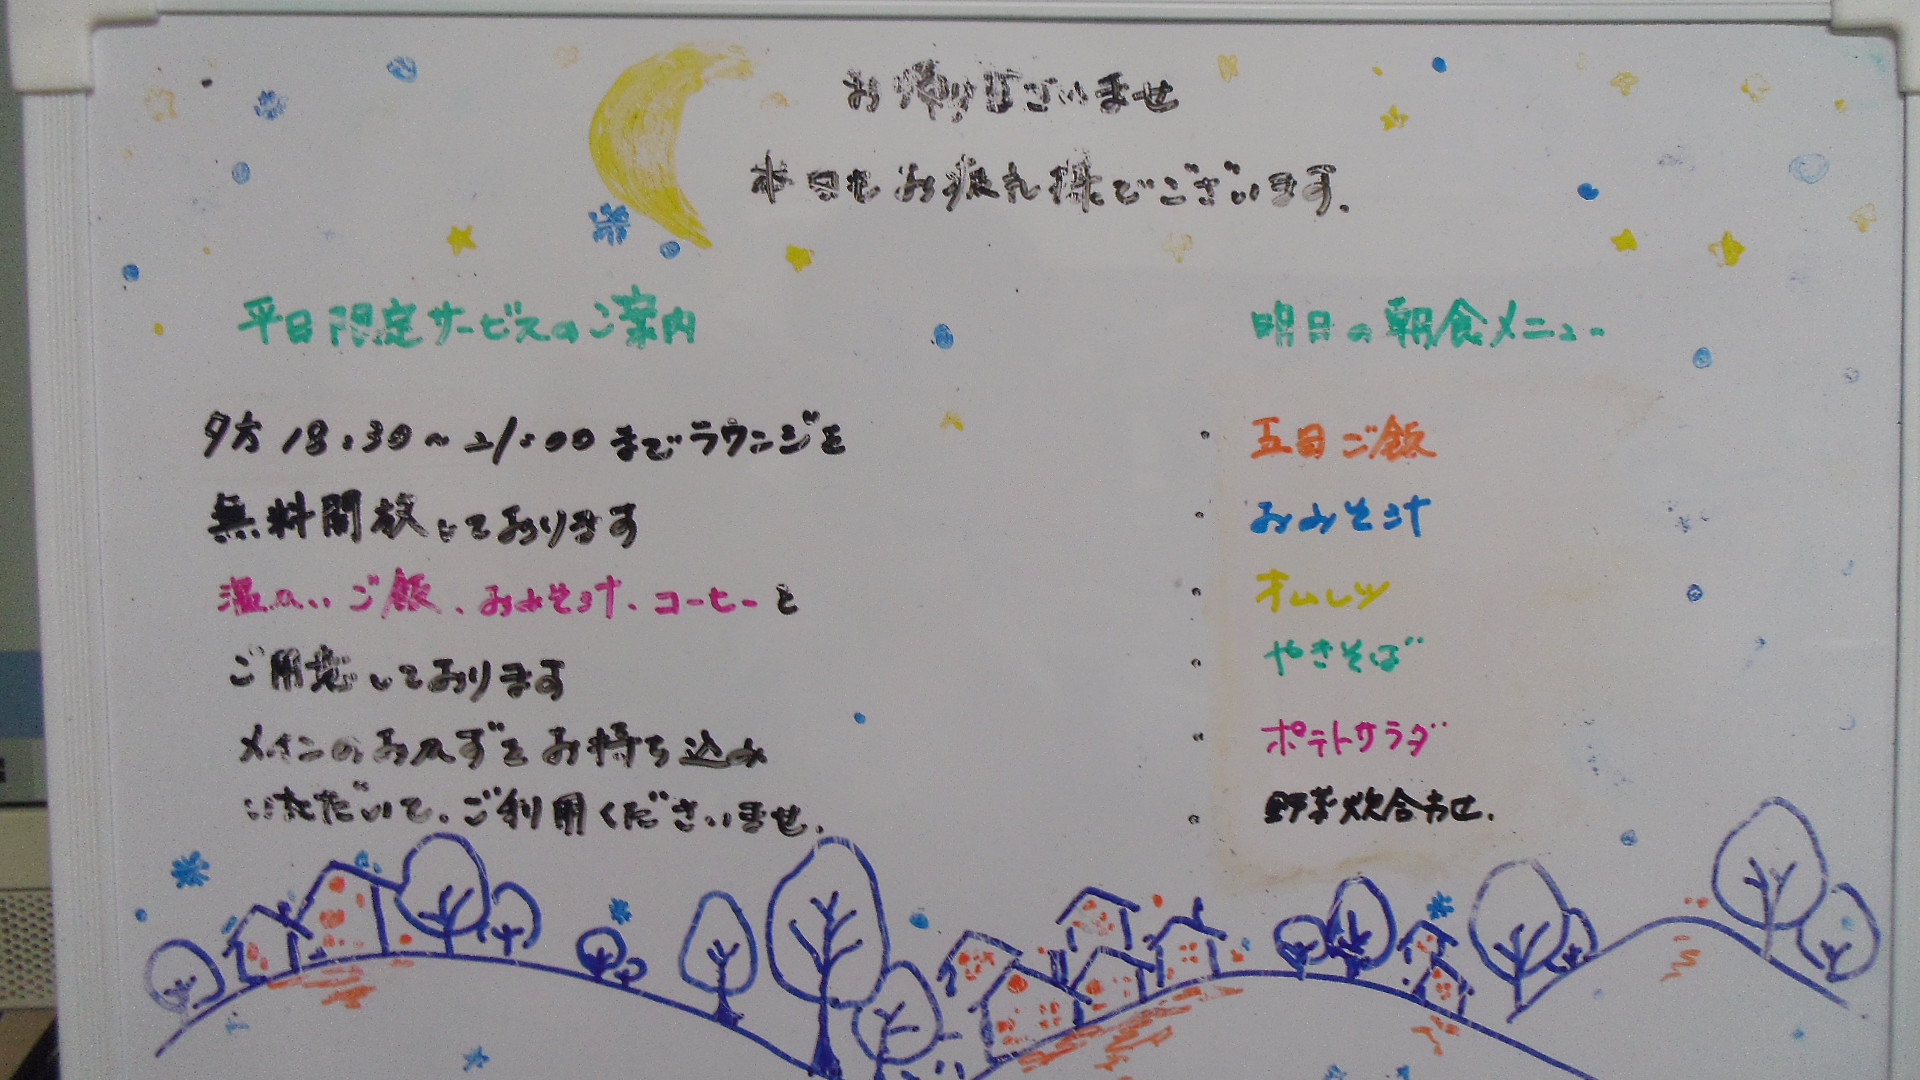 お帰りなさいませ
本日もお疲れ様でございます.
平日限定サービスのご案内
夕方18:30~21:00までラウンジを
無料開放しております
温かいご飯、おみそ汁、コーヒーを
ご用意しております
メインのおかずをお持ち込み
いただいて、ご利用くださいませ.
明日の朝食メニュー
・五目ご飯
・おみそ汁
・オムレツ
・やきそば
・ポテトサラダ
・野菜炊合わせ.